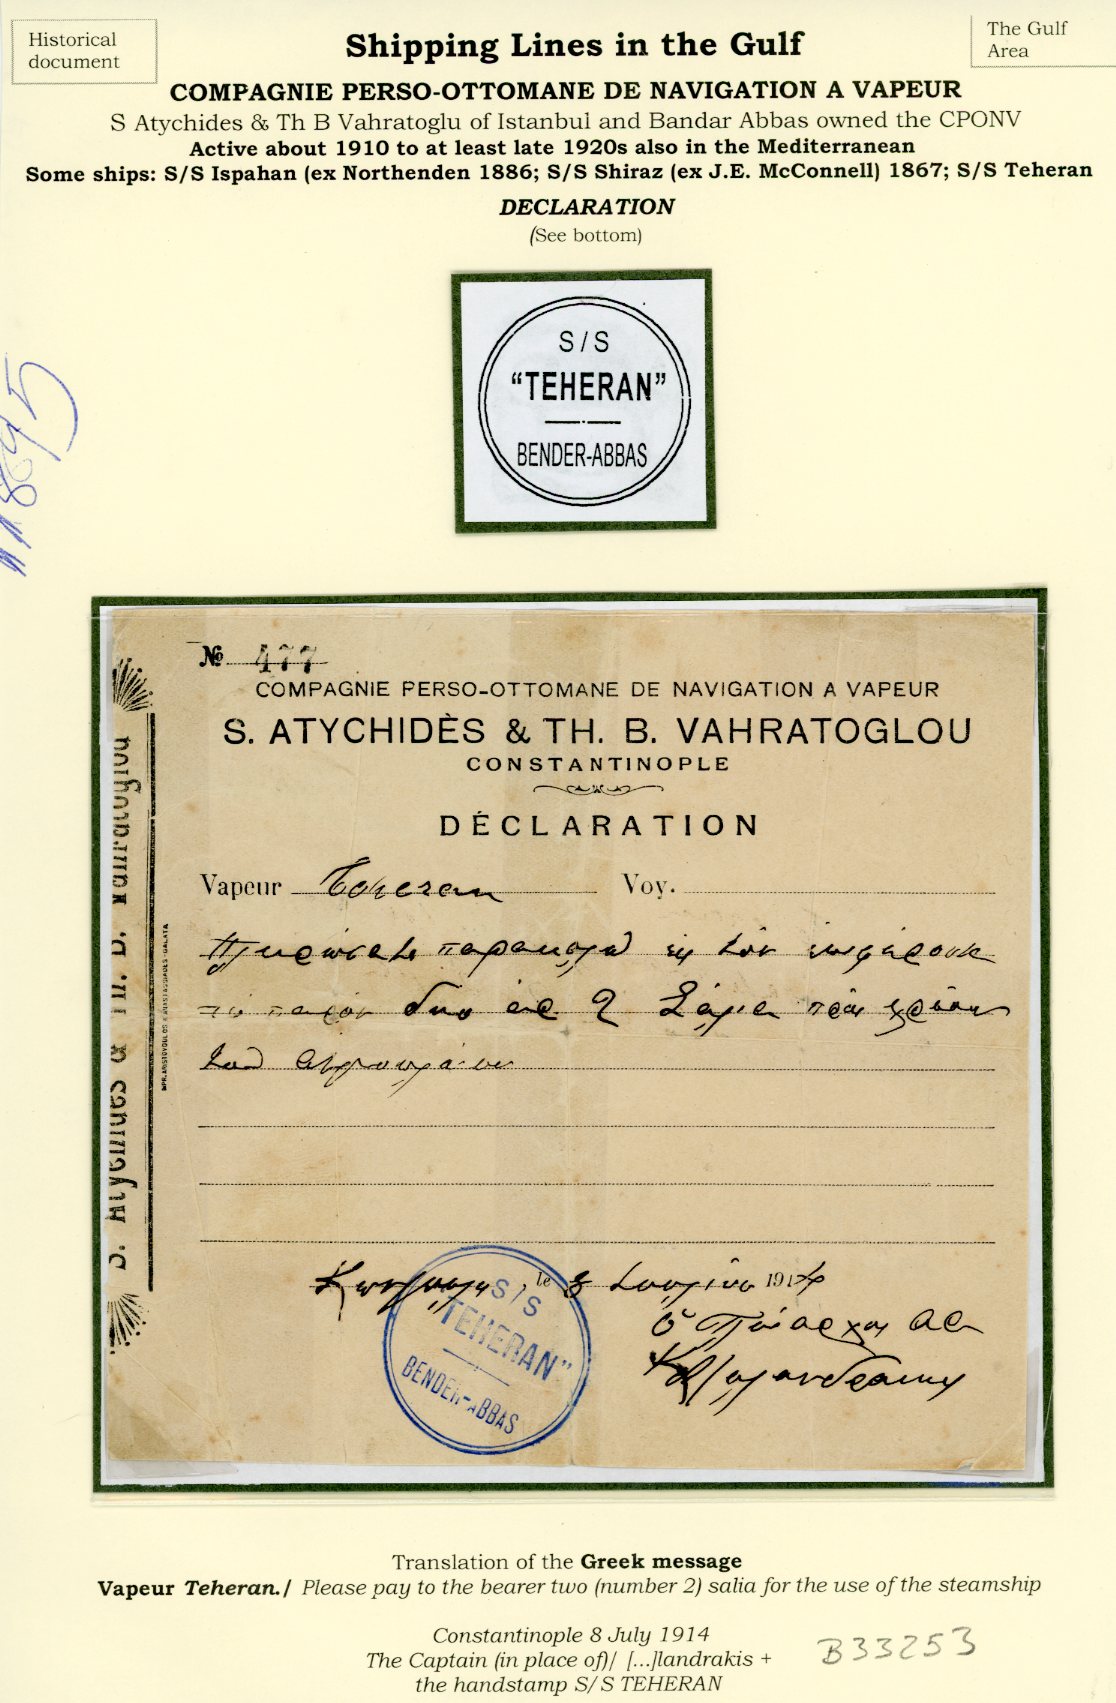 Historical
document
Shipping Lines in the Gulf
The Gulf
Area
COMPAGNIE PERSO-OTTOMANE DE NAVIGATION A VAPEUR
S Atychides & Th B Vahratoglu of Istanbul and Bandar Abbas owned the CPONV
Active about 1910 to at least late 1920s also in the Mediterranean
Some ships: S/S Ispahan (ex Northenden 1886; S/S Shiraz (ex J.E. McConnell) 1867; S/S Teheran
DECLARATION
(See bottom)
S/S
"TEHERAN"
BENDER-ABBAS
№ 477
COMPAGNIE PERSO-OTTOMANE DE NAVIGATION A VAPEUR
S. ATYCHIDÈS & TH. B. VAHRATOGLOU
CONSTANTINOPLE
DÉCLARATION
Vapeur Teheran Voy.
Πληρώσατε παρακαλῶ εἰς τὸν
τὸ παρὸν δύο ἀρ 2
τοῦ
le 8 Ἰουλίου 1914
Ὁ Πλοίαρχος
S/S
"TEHERAN"
BENDER-ABBAS
S. Atychides & Th. B. Vahratoglou
Translation of the Greek message
Vapeur Teheran./ Please pay to the bearer two (number 2) salia for the use of the steamship
Constantinople 8 July 1914
The Captain (in place of)/ [...]landrakis +
the handstamp S/S TEHERAN
B33253